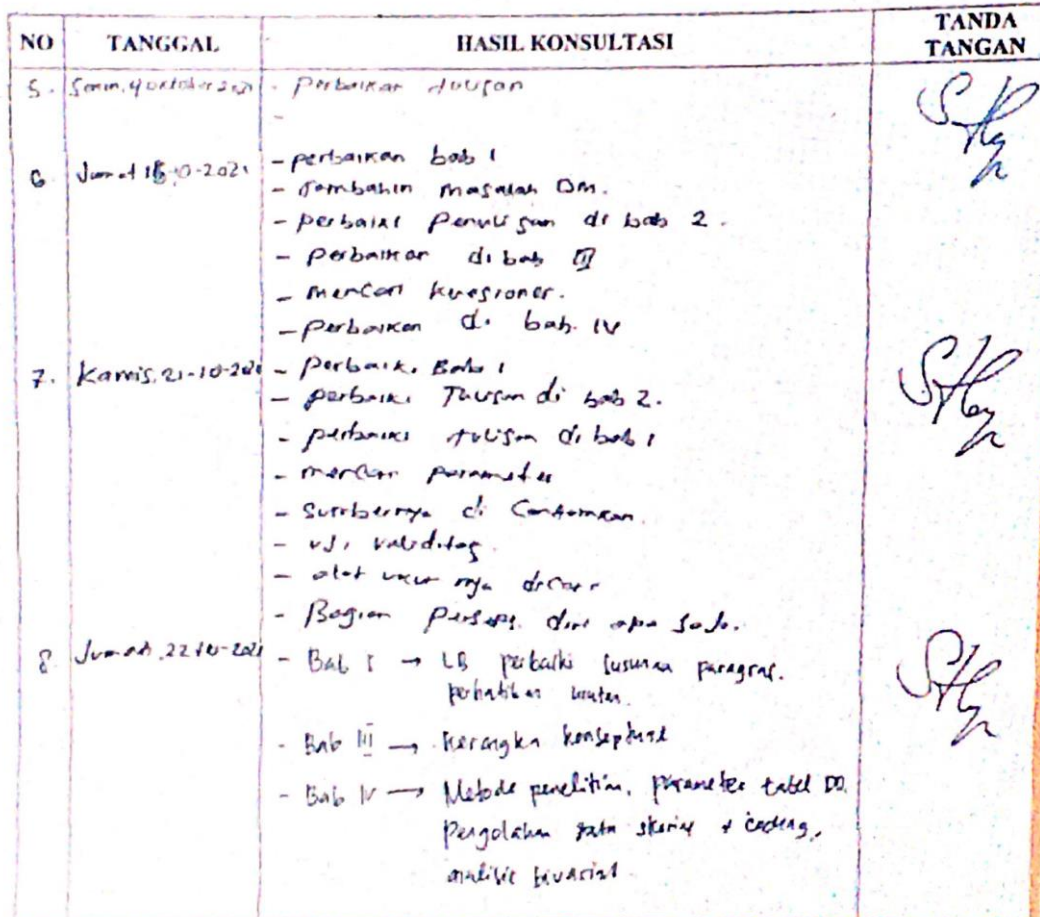 NO TANGGAL HASIL KONSULTASI TANDA TANGAN
5. Senin, 4 oktober 2021 - Perbaikan tulisan
-
6. Jumat 15-10-2021 - perbaikan bab 1
- Tambahin masalah DM.
- perbaiki Penulisan di bab 2.
- Perbaikan di bab III
- mencari kuesioner.
- Perbaikan di bab. IV
7. Kamis, 21-10-2021 - Perbaiki Bab 1
- perbaiki Tulisan di bab 2.
- perbaiki tulisan di bab 1
- mencari parameter
- Sumbernya di Cantumkan.
- uji validitas.
- alat ukur nya dicari
- Bagian Persepsi diri apa saja.
8. Jumat, 22-10-2021 - Bab I → LB perbaiki susunan paragraf.
perhatikan
- Bab III → Kerangka konseptual
- Bab IV → Metode penelitian, parameter tabel DO.
Pengolahan data skoring + coding,
analisis bivariat